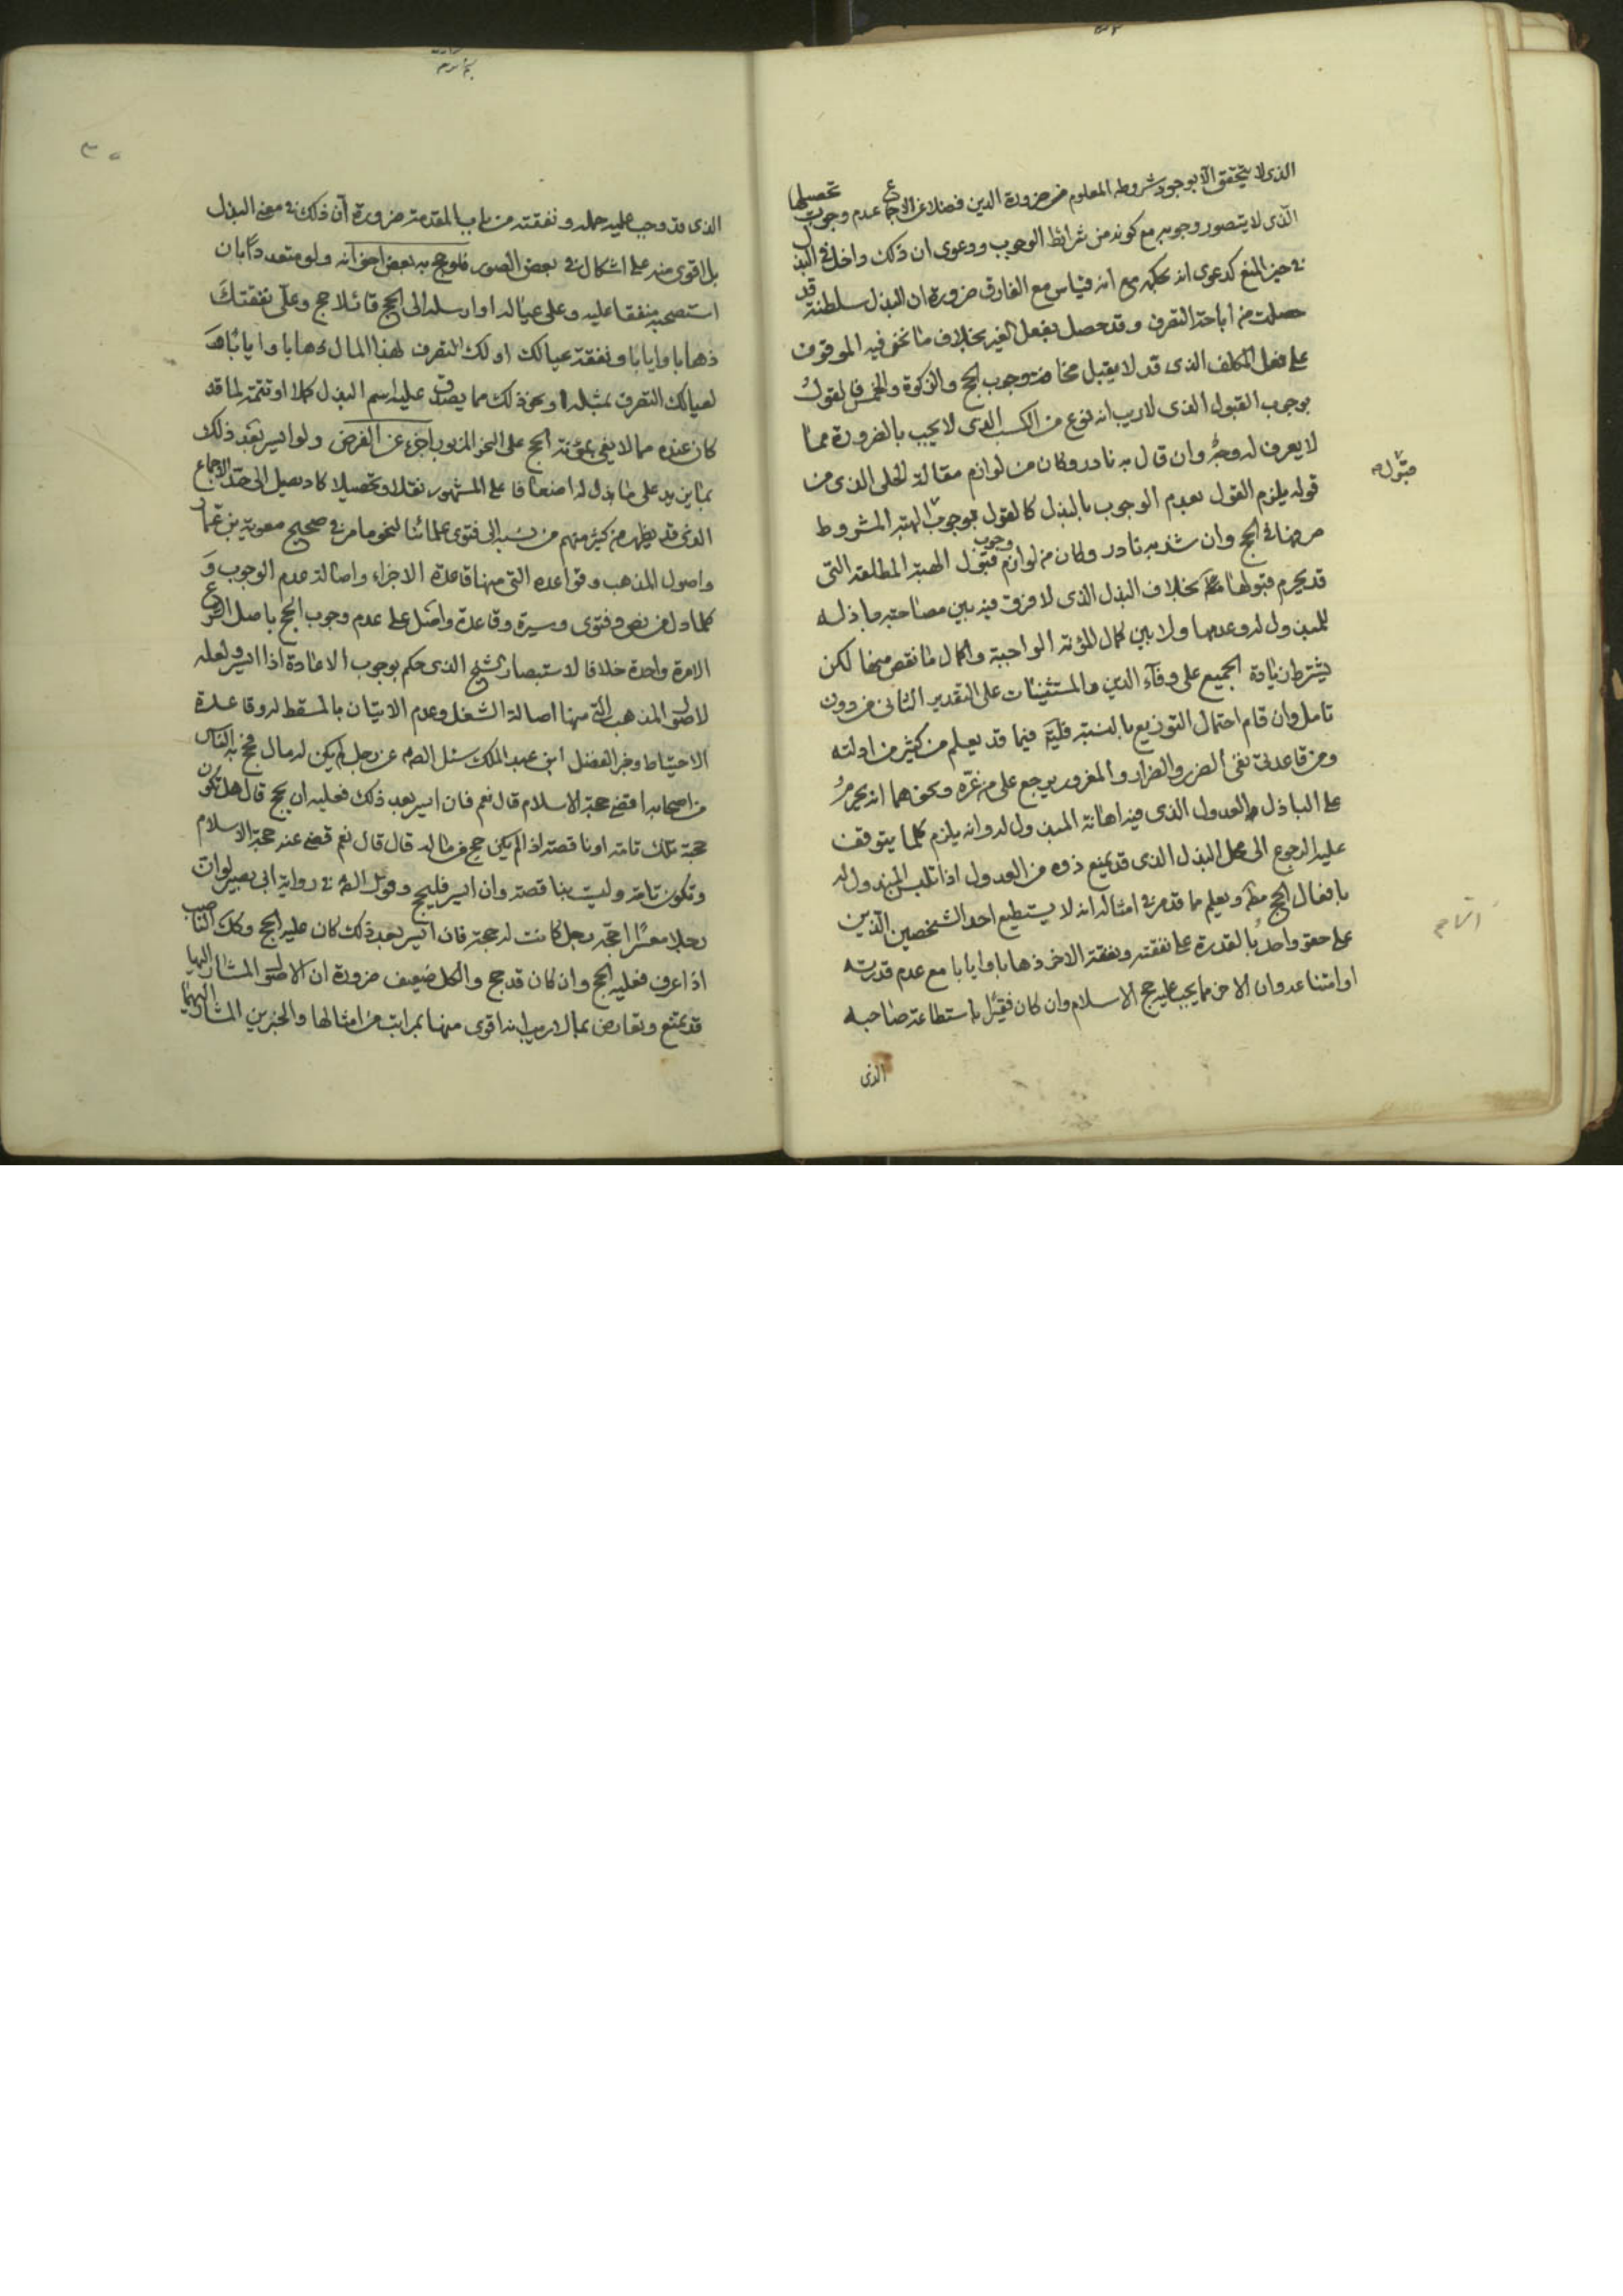 الذى لا يتحقق الا بوجود شروطه المعلوم من ضرورة الدين فضلا عن الاجماع عدم وجوب تحصيلها
الذى لا يتصور وجوبه مع كونه من شرائط الوجوب ودعوى ان ذلك داخل فى البذل
فى حيز المنع كدعوى انه بحكمه مع انه قياس مع الفارق ضرورة ان البذل سلطنة قد
حصلت من اباحة التصرف وقد حصل بفعل الغير بخلاف ما نحن فيه الموقوف
على فعل المكلف الذى قد لا يقبل وجوب الحج والزكوة والخمس فالقول
بوجوب القبول الذى لا ريب انه نوع من الكسب الذى لا يجب بالضرورة مما
لا يعرف له وجه وان قال به نادر وكان من لوازم مقالة الحلى الذى من
قوله يلزم القول بعدم الوجوب بالبذل كالقول بوجوب قبول الهبة المشروط
صرفها فى الحج وان شذ به نادر وكان من لوازم وجوب قبول الهبة المطلقة التى
قد يحرم قبولها بخلاف البذل الذى لا فرق فيه بين مصاحبة باذله
للمبذول له وعدمها ولا بين كمال المؤنة الواجبة واكمال ما نقص منها لكن
يشترط زيادة الجميع على وفآء الدين والمستثنيات على التقدير الثانى من دون
تامل وان قام احتمال التوزيع بالنسبة فيما قد يعلم من كثير من ادلته
ومن قاعدتى نفى الضرر والضرار والمغرور يرجع على من غره ونحوهما انه يحرم
على الباذل العدول الذى فيه اهانة المبذول له وانه يلزم كلما يتوقف
عليه الرجوع الى محل البذل الذى قد يمنع ذوه من العدول اذا تلبس المبذول له
بافعال الحج ويعلم مما قدمر فى امثاله انه لا يستطيع احد الشخصين الذين
على حقو واحد بالقدرة على نفقته ونفقة الاخر ذهابا وايابا مع عدم قدرته
او امتناعه وان الاخر مما يجب عليه حج الاسلام وان كان فقيرا باستطاعة صاحبه
الذى
قبول
الذى قد وجب عليه حمله ونفقته من باب المقدمة ضرورة ان ذلك فى معنى البذل
بل اقوى منه على اشكال فى بعض الصور فلو حج به بعض اخوانه ولو متعددا بان
استصحبه منفقا عليه وعلى عياله او ارسله الى الحج قائلا حج وعلى نفقتك
ذهابا وايابا ونفقة عيالك او لك التصرف بهذا المال ذهابا وايابا
لعيالك التصرف بمثله ونحو ذلك مما يصدق عليه اسم البذل كلا او تتمة لما قد
كان عنده مما لا يفى بمؤنة الحج على النحو المزبور اجزء عن الفرض ولو ايسر بعد ذلك
بما يزيد على ما بذل له اضعافا على المشهور نقلا وتحصيلا كاد يصل الى حد الاجماع
الذى قد يظهر من كثير منهم من نسبه الى فتوى علمائنا لنحو ما مر فى صحيح معوية بن عمار
واصول المذهب وقواعده التى منها قاعدة الاجزاء واصالة عدم الوجوب و
كلما دل من نص وفتوى وسيرة وقاعدة واصل على عدم وجوب الحج باصل الشرع
الا مرة واحدة خلافا لاستبصار الشيخ الذى حكم بوجوب الاعادة اذا ايسر ولعله
لاصول المذهب التى منها اصالة الشغل وعدم الاتيان بالمسقط له وقاعدة
الاحتياط وخبر الفضل ابن عبد الملك سئل الصم عن رجل لم يكن له مال فحج به اناس
من اصحابه اقضى حجة الاسلام قال نعم فان ايسر بعد ذلك فعليه ان يحج قال هل تكون
حجة تلك تامة او ناقصة اذا لم يكن حج من ماله قال قال نعم قضى عنه حجة الاسلام
وتكون تامة وليست بناقصة وان ايسر فليحج وقول الصم فى رواية ابى بصير لو ان
رجلا معسرا احجه رجل كانت له حجة فان ايسر بعد ذلك كان عليه الحج وكك الناصب
اذا عرف فعليه الحج وان كان قد حج والكل ضعيف ضرورة ان الاصول المشار اليها
قد تمنع وتعارض بما لا ريب انه اقوى منها بمراتب من امثالها والخبرين المشار اليهما